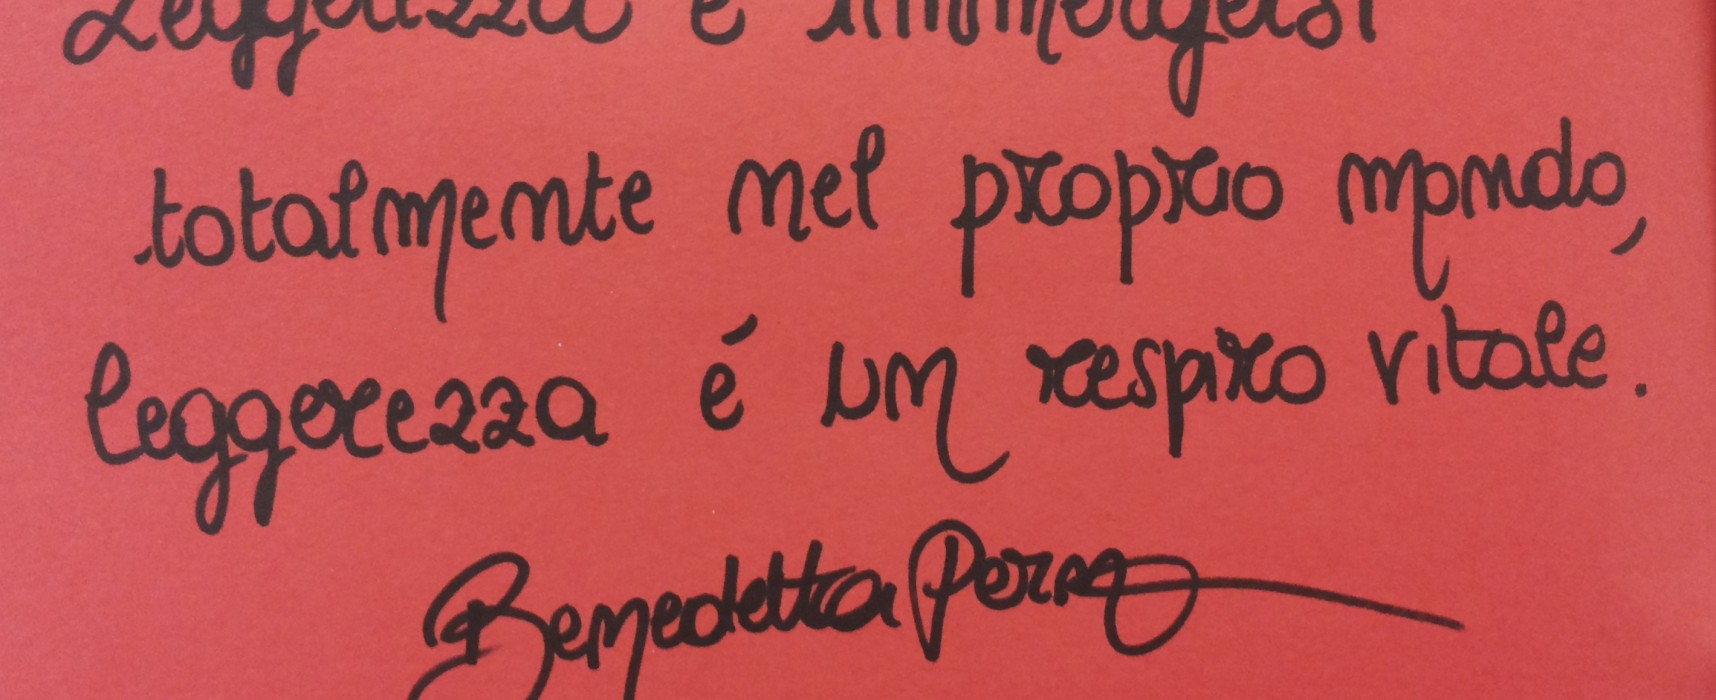 Leggerezza è immergersi
totalmente nel proprio mondo,
leggerezza é un respiro vitale.
Benedetta